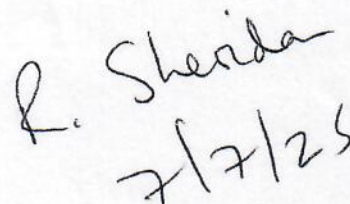 R. Sheridan
7/7/25